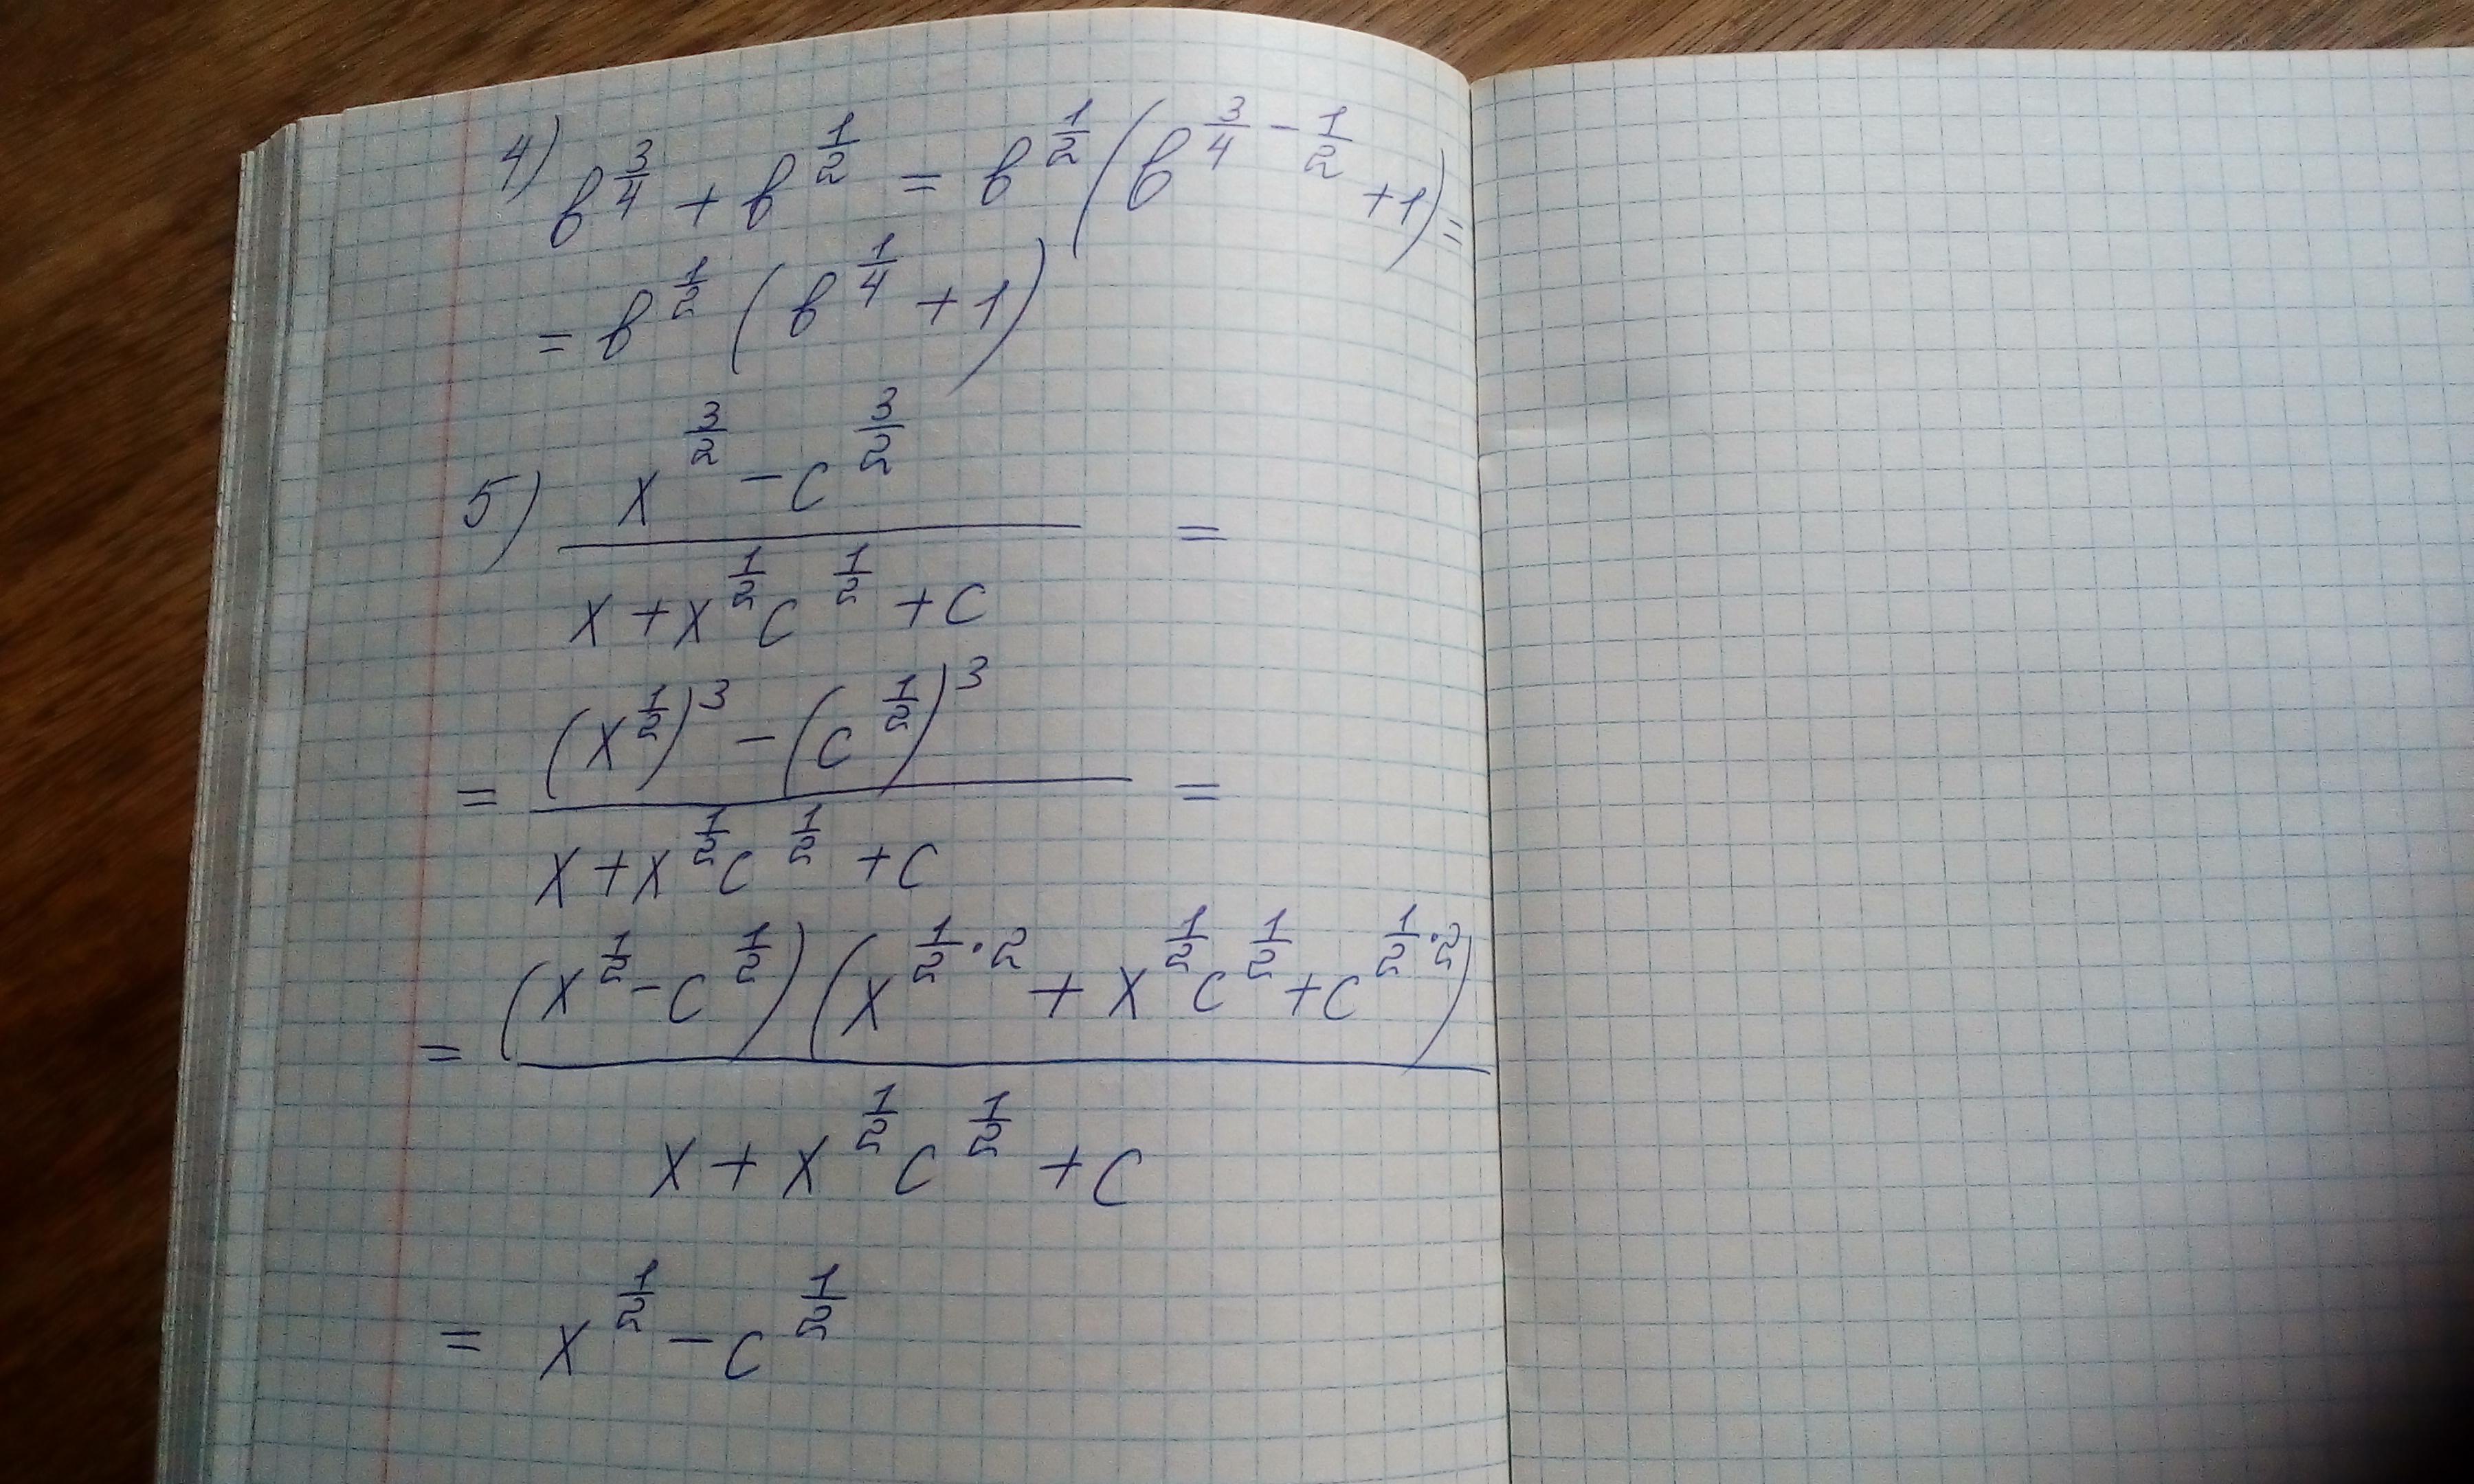 4) b^{\frac{3}{4}} + b^{\frac{1}{2}} = b^{\frac{1}{2}} (b^{\frac{3}{4} - \frac{1}{2}} + 1) =
= b^{\frac{1}{2}} (b^{\frac{1}{4}} + 1)
5) \frac{x^{\frac{3}{2}} - c^{\frac{3}{2}}}{x + x^{\frac{1}{2}} c^{\frac{1}{2}} + c} =
= \frac{(x^{\frac{1}{2}})^3 - (c^{\frac{1}{2}})^3}{x + x^{\frac{1}{2}} c^{\frac{1}{2}} + c} =
= \frac{(x^{\frac{1}{2}} - c^{\frac{1}{2}}) (x^{\frac{1}{2} \cdot 2} + x^{\frac{1}{2}} c^{\frac{1}{2}} + c^{\frac{1}{2} \cdot 2})}{x + x^{\frac{1}{2}} c^{\frac{1}{2}} + c}
= x^{\frac{1}{2}} - c^{\frac{1}{2}}